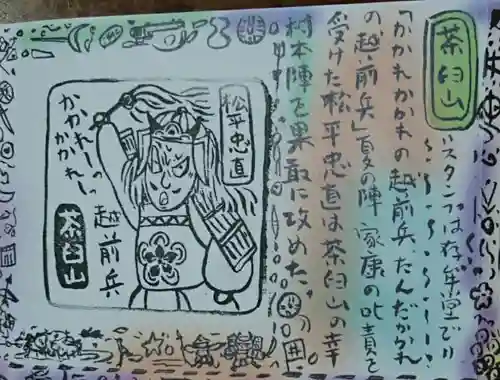 茶臼山
"スタンプは存牟堂で"
「かかれかかれの越前兵、たんだかかれ
の越前兵」夏の陣、家康の叱責を
受けた松平忠直は茶臼山の幸
村本陣を果敢に攻めた。
松平忠直
かかれーっ
かかれーっ
越前兵
茶臼山